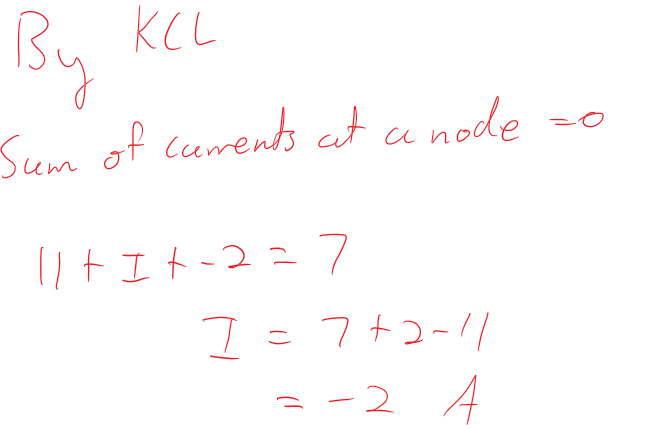 By KCL
Sum of currents at a node =0
11 + I + -2 = 7
I = 7 + 2 - 11
= -2 A